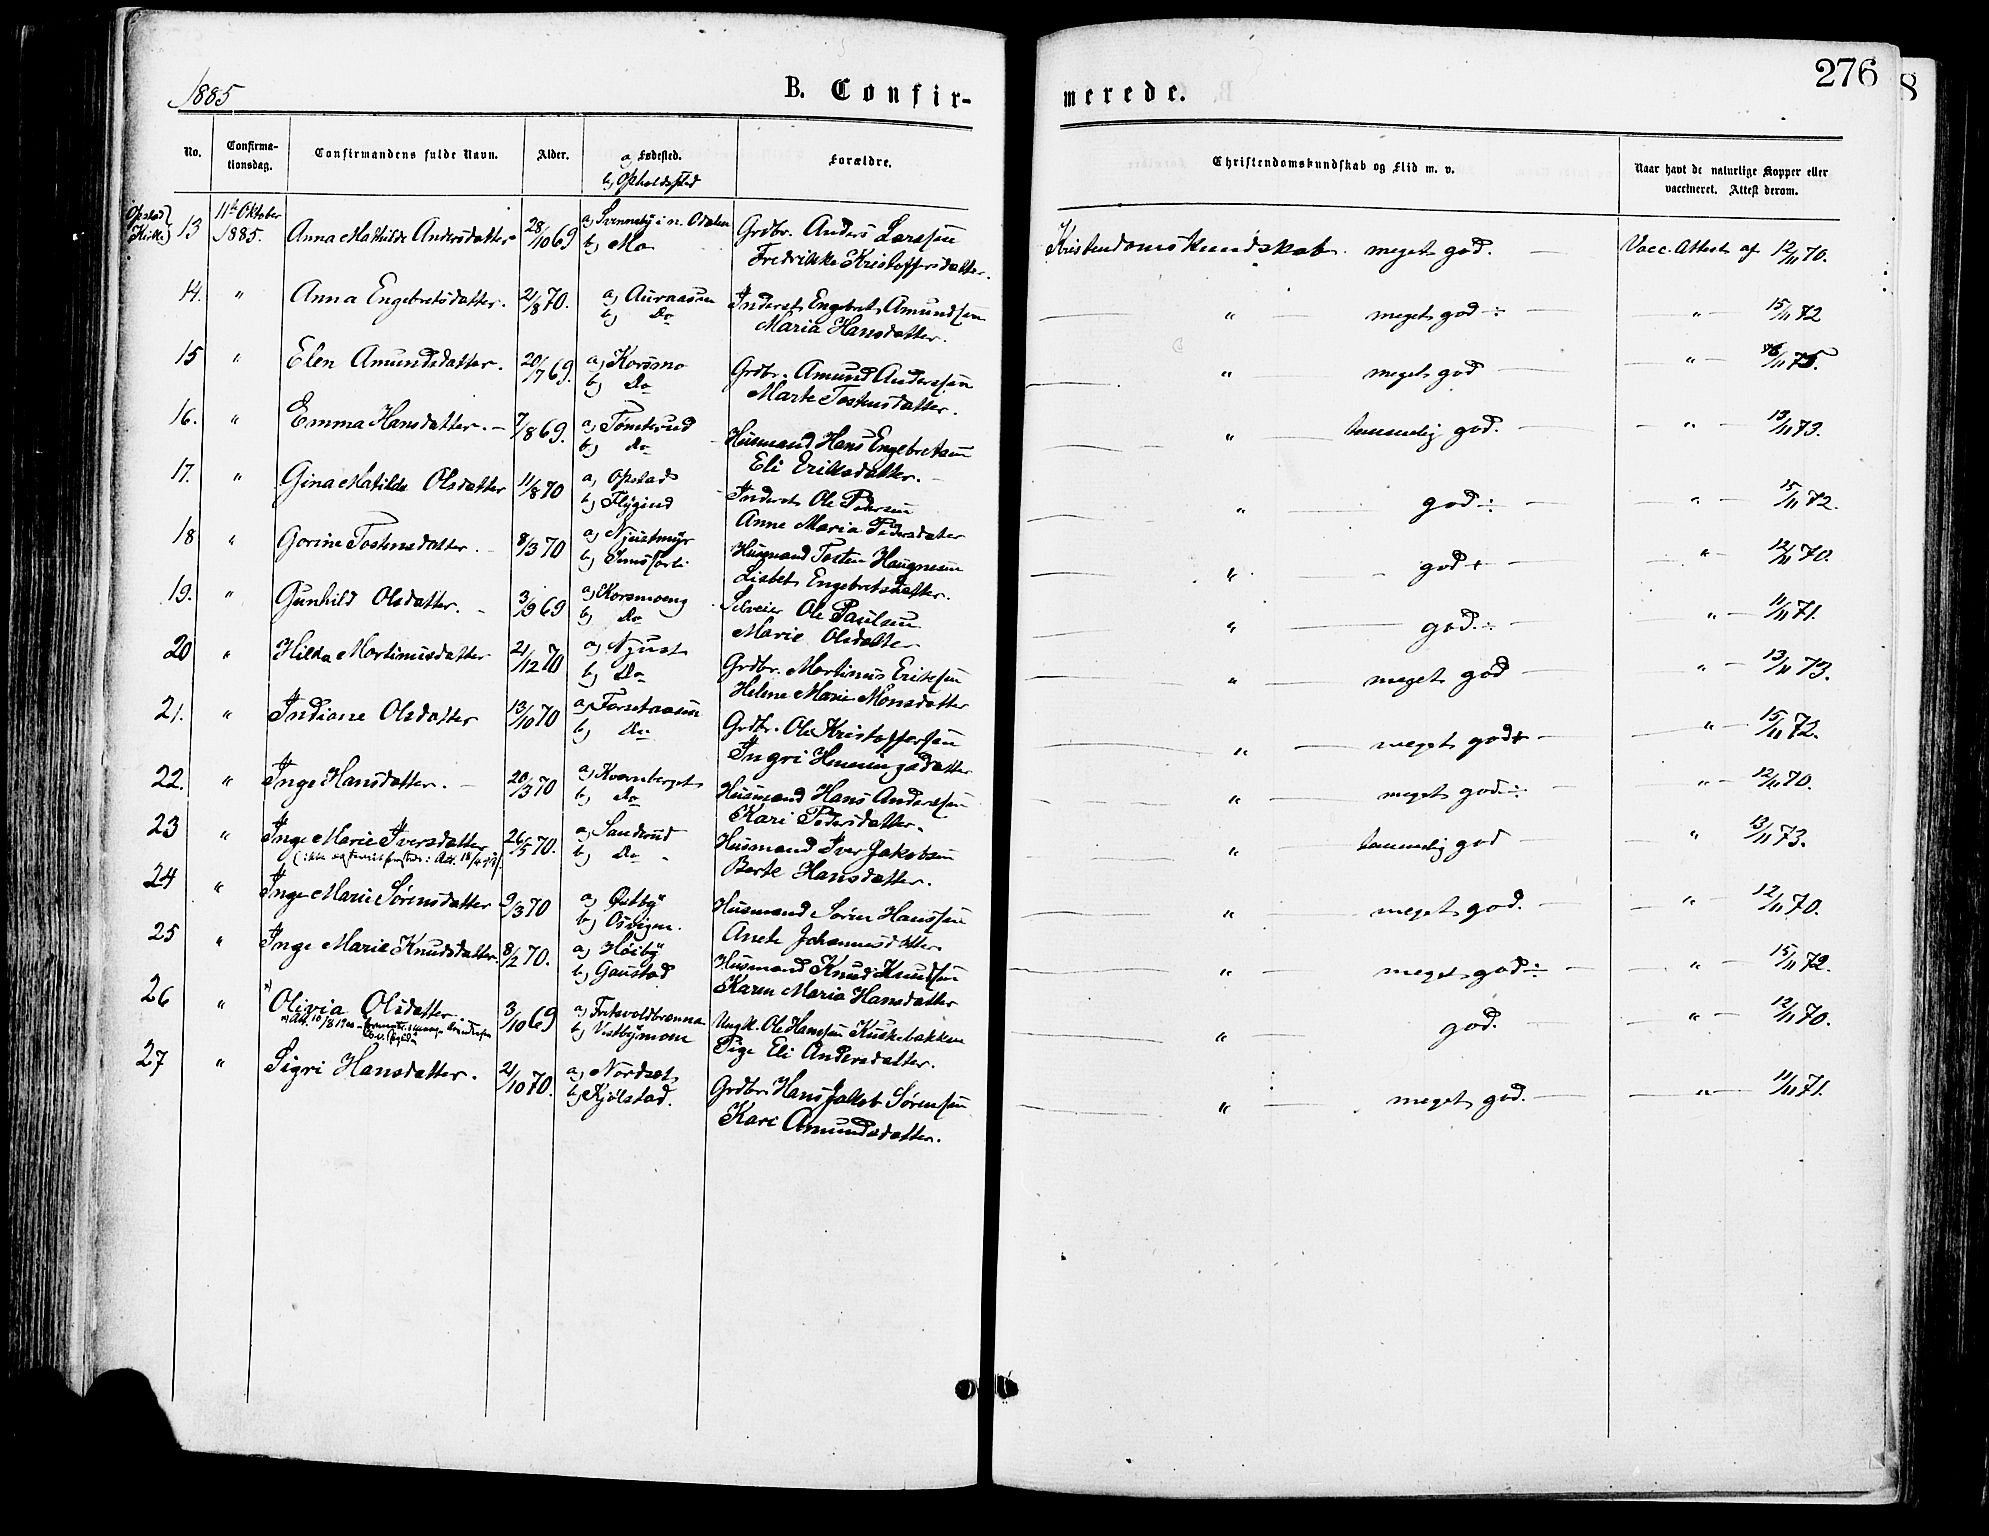 276
8
1885
B. Confir-
merede.
No. Confirma-tionsdag. Confirmandens fulde Navn. Alder. a) Fødested. b) Opholdssted Forældre. Christendomskundskab og Flid m. v. Naar havt de naturlige Kopper eller vaccineret. Attest derom.
Opstad Kirke 13 11te Oktober 1885. Anna Mathilde Andersdatter 28/10 69 a) Svenneby i n. Odalen Grdbr. Anders Larssen Kristendomskundskab. meget god. Vacc. Attest af 12/11 70.
b) Mo Fredrikke Kristoffersdatter.
14. " Anna Engebretsdatter. 21/8 70. a) Auraasen Inderst Engebret Amundsen " meget god ÷ " 15/11 72
b) Do Maria Hansdatter.
15 " Elen Amundsdatter. 20/7 69. a) Korsmo Grdbr. Amund Anderssen " meget god "
b) Do Marte Tostensdatter.
16. " Emma Hansdatter. 7/8 69. a) Tønsterud Husmand Hans Engebretsen " temmelig god. " 13/11 73.
b) do Eli Eriksdatter.
17. " Gina Matilde Olsdatter 11/8 70 a) Opstad Inderst Ole Pedersen " god ÷ " 15/11 72.
b) Flygind Anne Maria Pedersdatter
18 " Gorine Tostensdatter. 8/3 70 a) Njustmyr Husmand Tosten Haugnesen " god + " 12/11 70.
b) Lisbet Engebretsdatter.
19. " Gunhild Olsdatter. 3/9 69 a) Korsmoeng Selveier Ole Paulsen " god ÷ " 11/11 71.
b) Do Marie Olsdatter
20 " Hilda Martinusdatter 21/12 70 a) Njust Grdbr. Martinus Eriksen " meget god " 13/11 73.
b) Do Helene Marie Monsdatter
21. " Indiane Olsdatter 13/10 70 a) Grdbr. Ole Kristoffersen " meget god + " 15/11 72.
b) Do Ingri Henningsdatter
22. " Inge Hansdatter. 20/3 70 a) Kvernberget Husmand Hans Anderssen " meget god ÷ " 12/11 70.
b) Do Kari Pedersdatter.
23 " Inge Marie Iversdatter 26/5 70. a) Sanderud Husmand Iver Jakobsen " temmelig god " 13/11 73.
b) Do Berte Hansdatter.
24 " Inge Marie Sørensdatter 9/3 70 a) Østby Husmand Søren Hanssen " meget god. " 12/11 70.
b) Osvigen. Anete Johannesdatter
25 " Inge Marie Knudsdatter. 8/2 70. a) Høiby Husmand Knud Knudsen " meget god ÷ " 15/11 72.
b) Gaustad Karen Maria Hansdatter
26 " Olivia Olsdatter. 3/10 69 a) Fritsvoldbrenna Ungk. Ole Hanssen Kuskebakken " god. " 12/11 70.
Att. 10/8 1900 b) Vestbymoen Pige Eli Andersdatter.
27 " Sigri Hansdatter. 21/10 70. a) Nordset Grdbr. Hans Jakob Sørensen " meget god. " 11/11 71.
b) Kjølstad. Kari Amundsdatter.